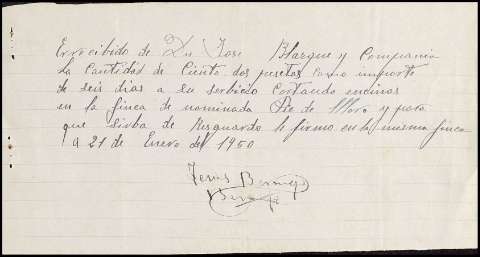 Erricibido de Dn José Blazque y Compania
la Cantidad de Ciento dos pesetas como importe
de seis dias a su serbicio Cortando encinas
en la finca de nominada Pie de Moro y para
que sirba de Resguardo le firmo en la misma finca
a 21 de Enero del 1950
Jesus Bermejo